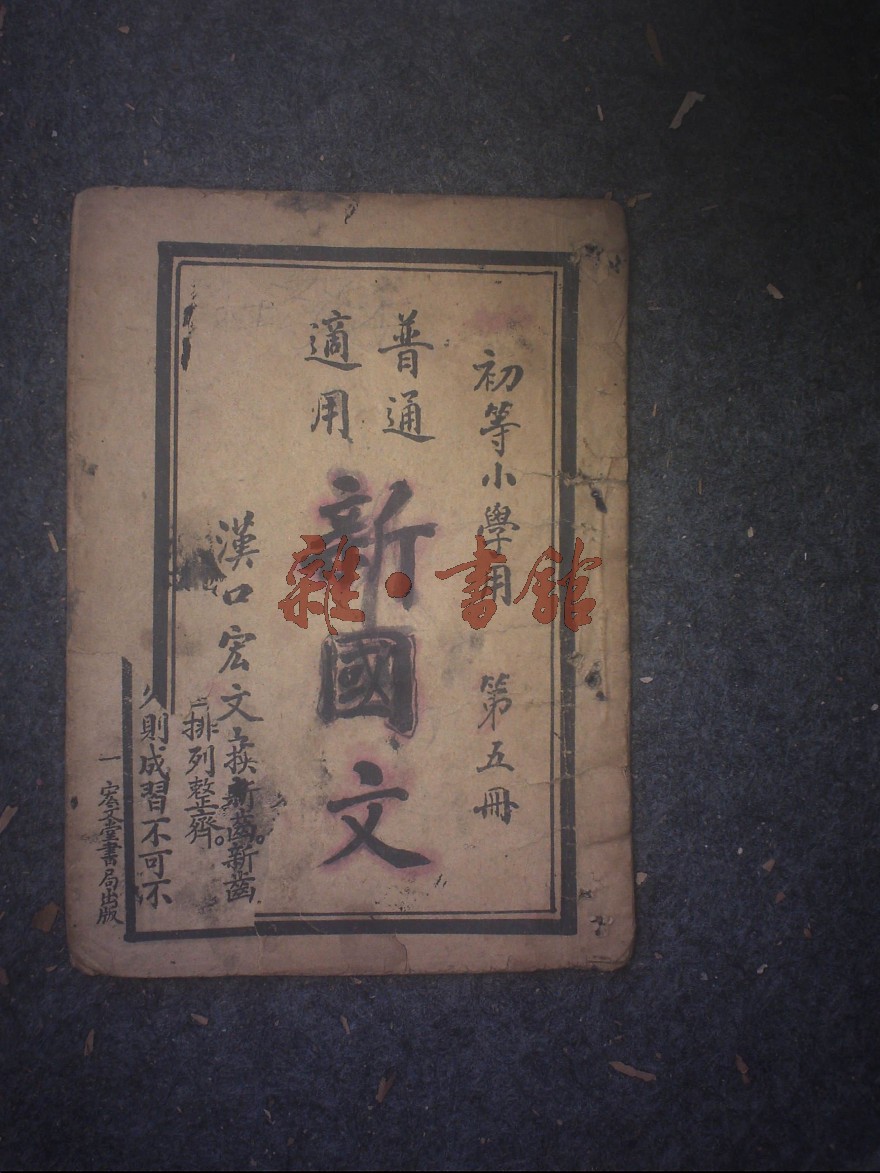 初等小學用 第五冊
普通
適用
新國文
漢口宏文
換新齒。新齒
排列整齊。
久則成習不可不
一 宏文堂書局出版
雜·書館